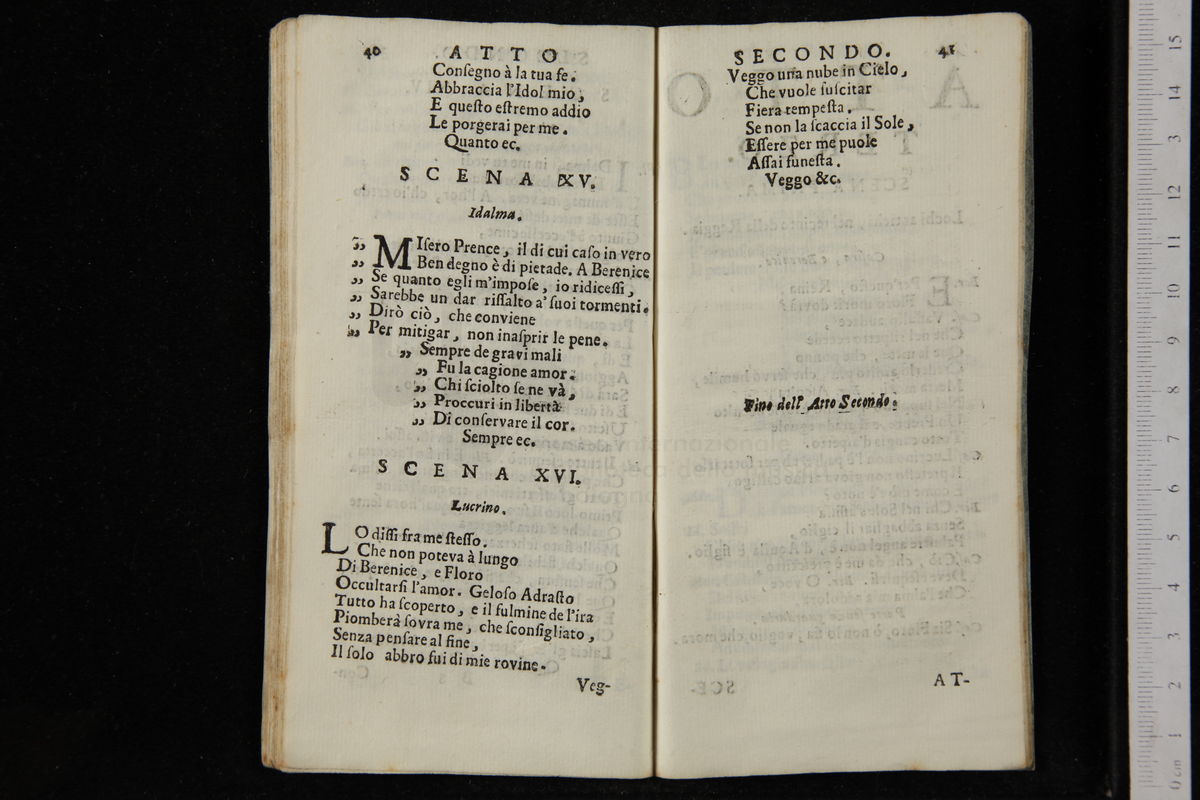 40 ATTO
Conſegno à la tua fe.
Abbraccia l'Idol mio;
E queſto eſtremo addio
Le porgerai per me.
Quanto ec.
SCENA XV.
Idalma.
„ MIſero Prence, il di cui caſo in vero
„ Ben degno è di pietade. A Berenice
„ Se quanto egli m'impoſe, io ridiceſſi,
„ Sarebbe un dar riſſalto a' ſuoi tormenti.
„ Dirò ciò, che conviene
„ Per mitigar, non inaſprir le pene.
„ Sempre de gravi mali
„ Fu la cagione amor.
„ Chi ſciolto ſe ne và,
„ Proccuri in libertà
„ Di conſervare il cor.
Sempre ec.
SCENA XVI.
Lucrino.
LO diſſi fra me ſteſſo.
Che non poteva à lungo
Di Berenice, e Floro
Occultarſi l'amor. Geloſo Adraſto
Tutto ha ſcoperto, e il fulmine de l'ira
Piomberà ſovra me, che ſconſigliato,
Senza penſare al fine,
Il ſolo abbro fui di mie rovine.
Veg-
SECONDO. 41
Veggo una nube in Cielo,
Che vuole ſuſcitar
Fiera tempeſta.
Se non la ſcaccia il Sole,
Eſſere per me puole
Aſſai funeſta.
Veggo &c.
Fine dell' Atto Secondo.
AT-